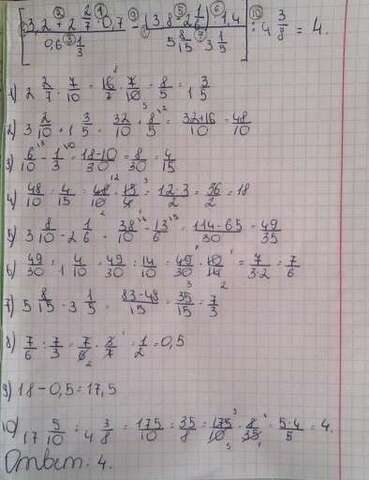 [(3,2 + 2 2/7 · 0,7)/(0,6 - 1/3) - ((3,8 - 2 1/6) : 1,4)/(5 8/15 - 3 1/5)] : 4 3/8 = 4.
1) 2 2/7 · 7/10 = 16/7 · 7/10 = 8/5 = 1 3/5
2) 3 2/10 + 1 3/5 = 32/10 + 8/5 = 32+16/10 = 48/10
3) 6/10 - 1/3 = 18-10/30 = 8/30 = 4/15
4) 48/10 : 4/15 = 48/10 · 15/4 = 12·3/2 = 36/2 = 18
5) 3 8/10 - 2 1/6 = 38/10 - 13/6 = 114-65/30 = 49/35
6) 49/30 : 1 4/10 = 49/30 : 14/10 = 49/30 · 10/14 = 7/3·2 = 7/6
7) 5 8/15 - 3 1/5 = 83-48/15 = 35/15 = 7/3
8) 7/6 : 7/3 = 7/6 · 3/7 = 1/2 = 0,5
9) 18 - 0,5 = 17,5
10) 17 5/10 : 4 3/8 = 175/10 : 35/8 = 175/10 · 8/35 = 5·4/5 = 4.
Ответ: 4.